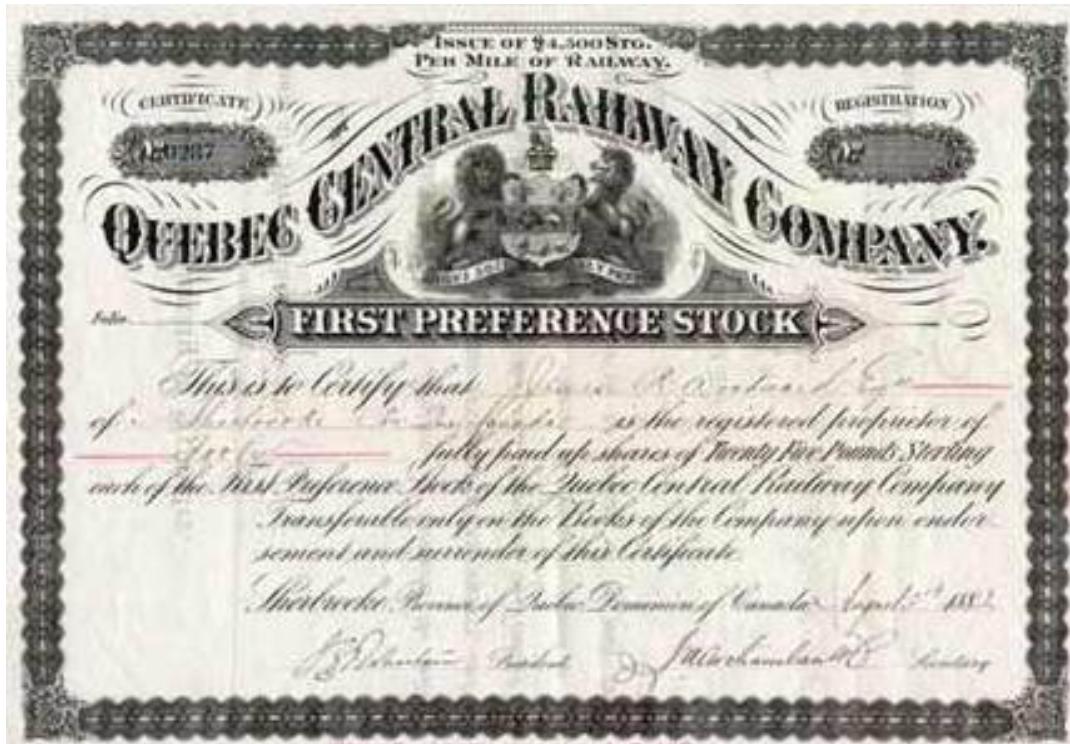 ISSUE OF £4,500 STG.
PER MILE OF RAILWAY.
CERTIFICATE
REGISTRATION
No 0287
No
QUEBEC CENTRAL RAILWAY COMPANY.
Folio
FIRST PREFERENCE STOCK
This is to Certify that R. Woodward Esq
of Sherbrooke is the registered proprietor of
Forty fully paid up shares of Twenty Five Pounds Sterling
each of the First Preference Stock of the Quebec Central Railway Company
Transferable only on the Books of the Company upon endor
sement and surrender of this Certificate
Sherbrooke Province of Quebec Dominion of Canada August 188
President Secretary